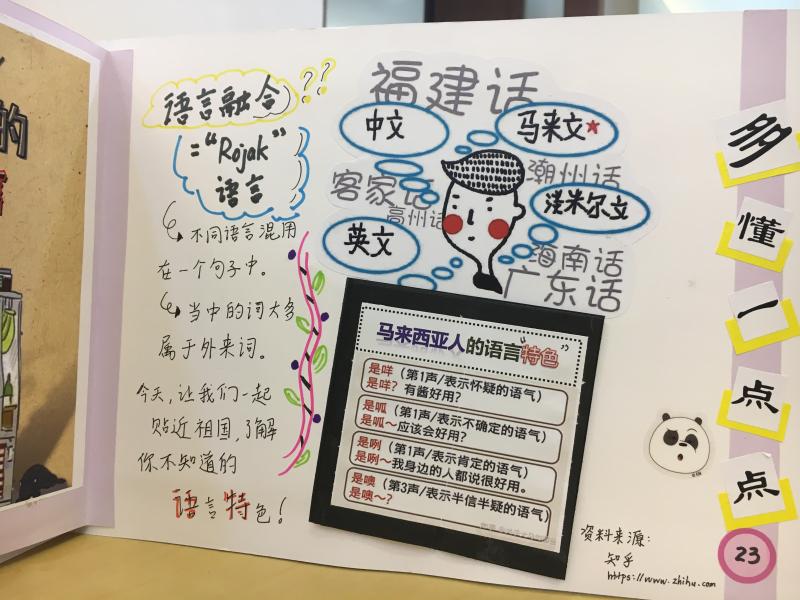 的
语言融合??
="Rojak"
语言
不同语言混用
在一个句子中。
当中的词大多
属于外来词。
今天,让我们一起
贴近祖国,了解
你不知道的
语言特色!
福建话
中文
马来文★
客家话
潮州话
高州话
淡米尔文
英文
海南话
广东话
马来西亚人的语言"特色"
是咩(第1声/表示怀疑的语气)
是咩?有酱好用?
是呱(第1声/表示不确定的语气)
是呱~应该会好用?
是咧(第1声/表示肯定的语气)
是咧~我身边的人都说很好用。
是噢(第3声/表示半信半疑的语气)
是噢~?
多
懂
一
点
点
资料来源:
知乎
https://www.zhihu.com
23